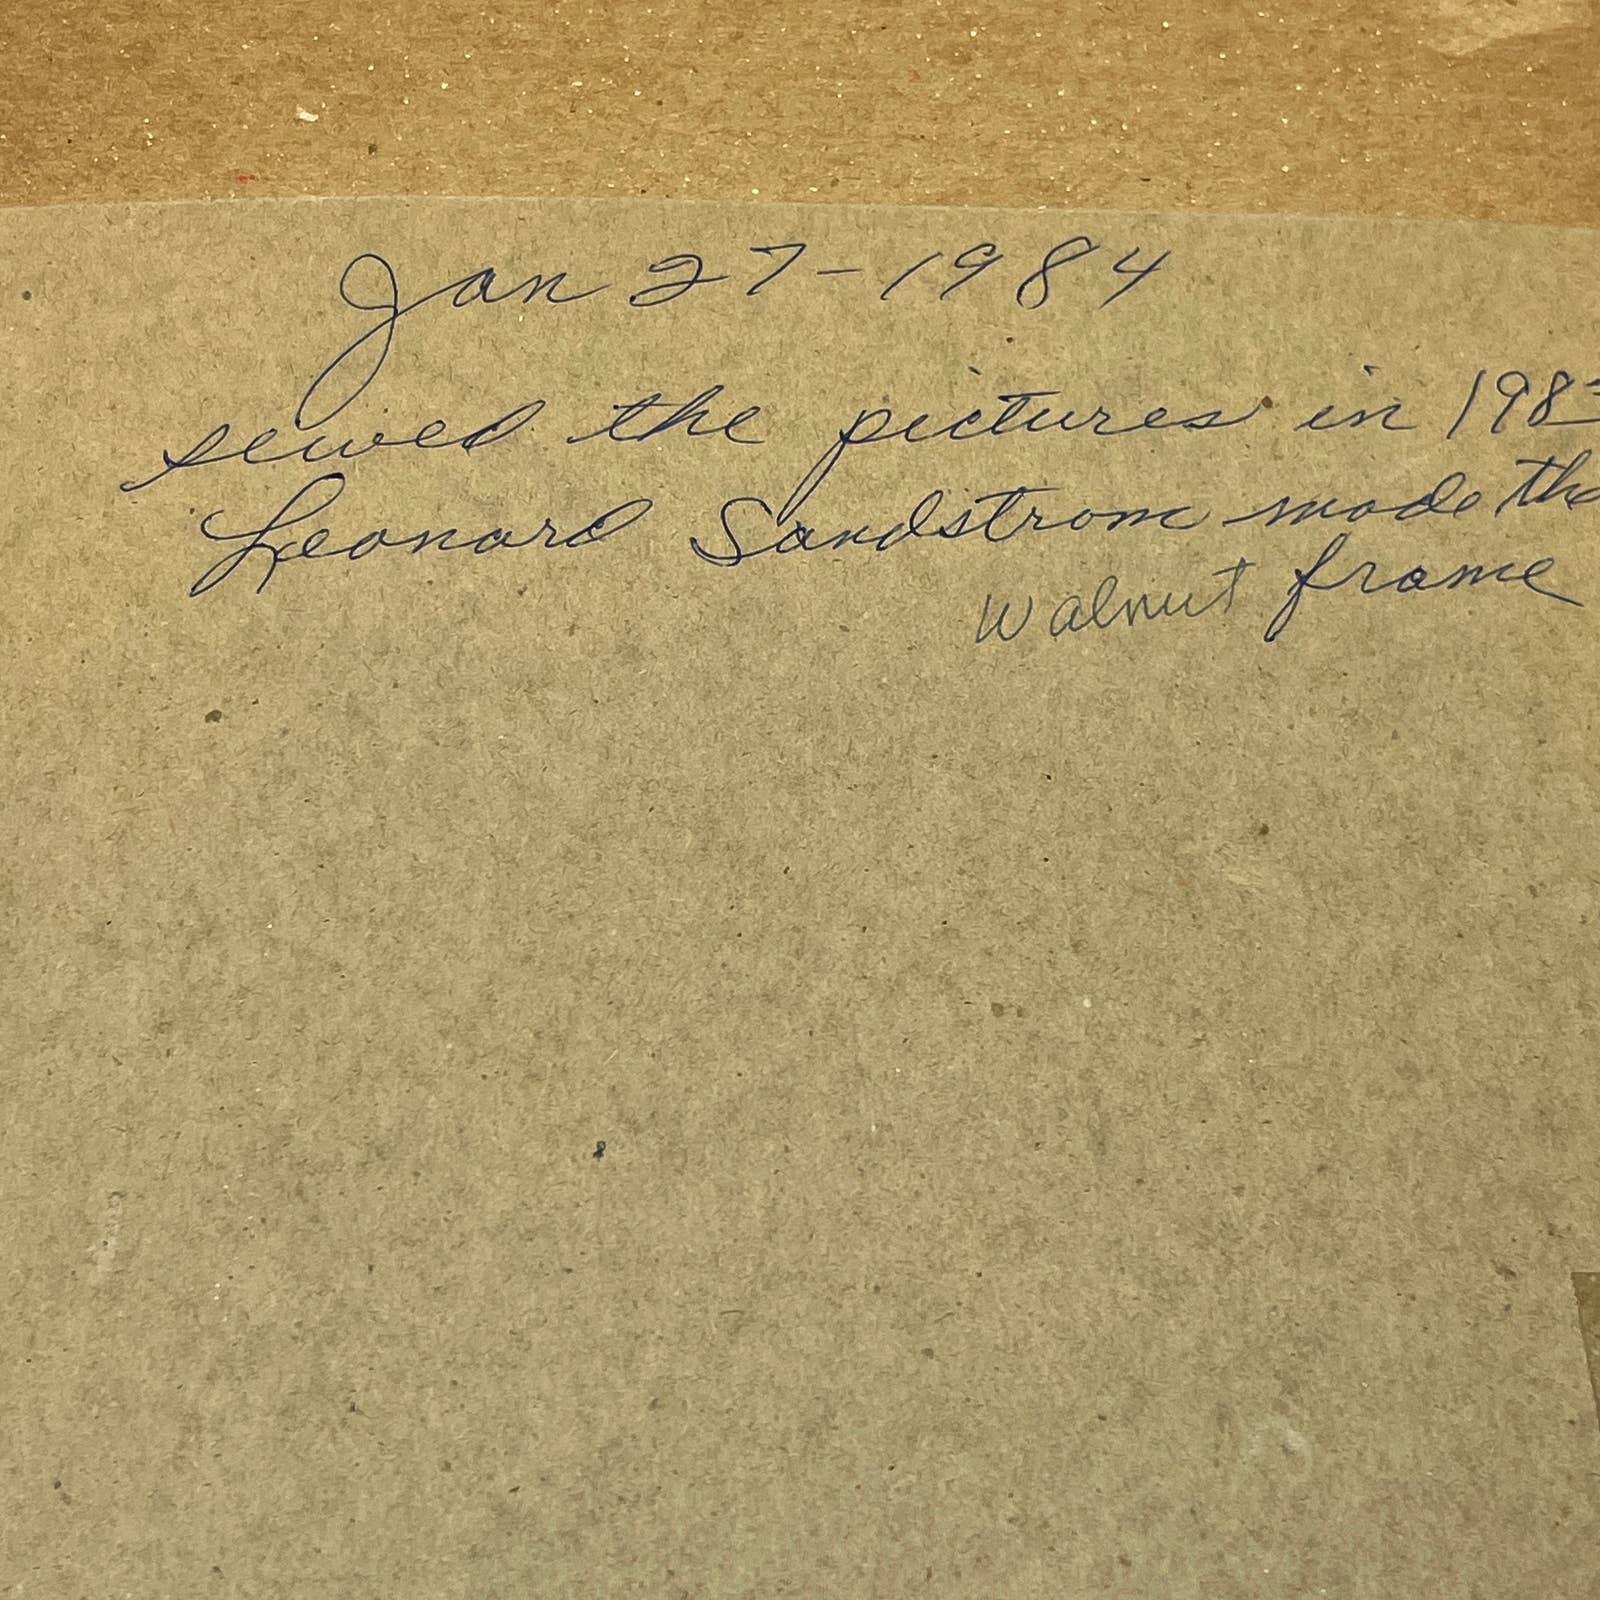 Jan 27-1984
sewed the pictures in 198
Leonard Sandstrom made the
walnut frame